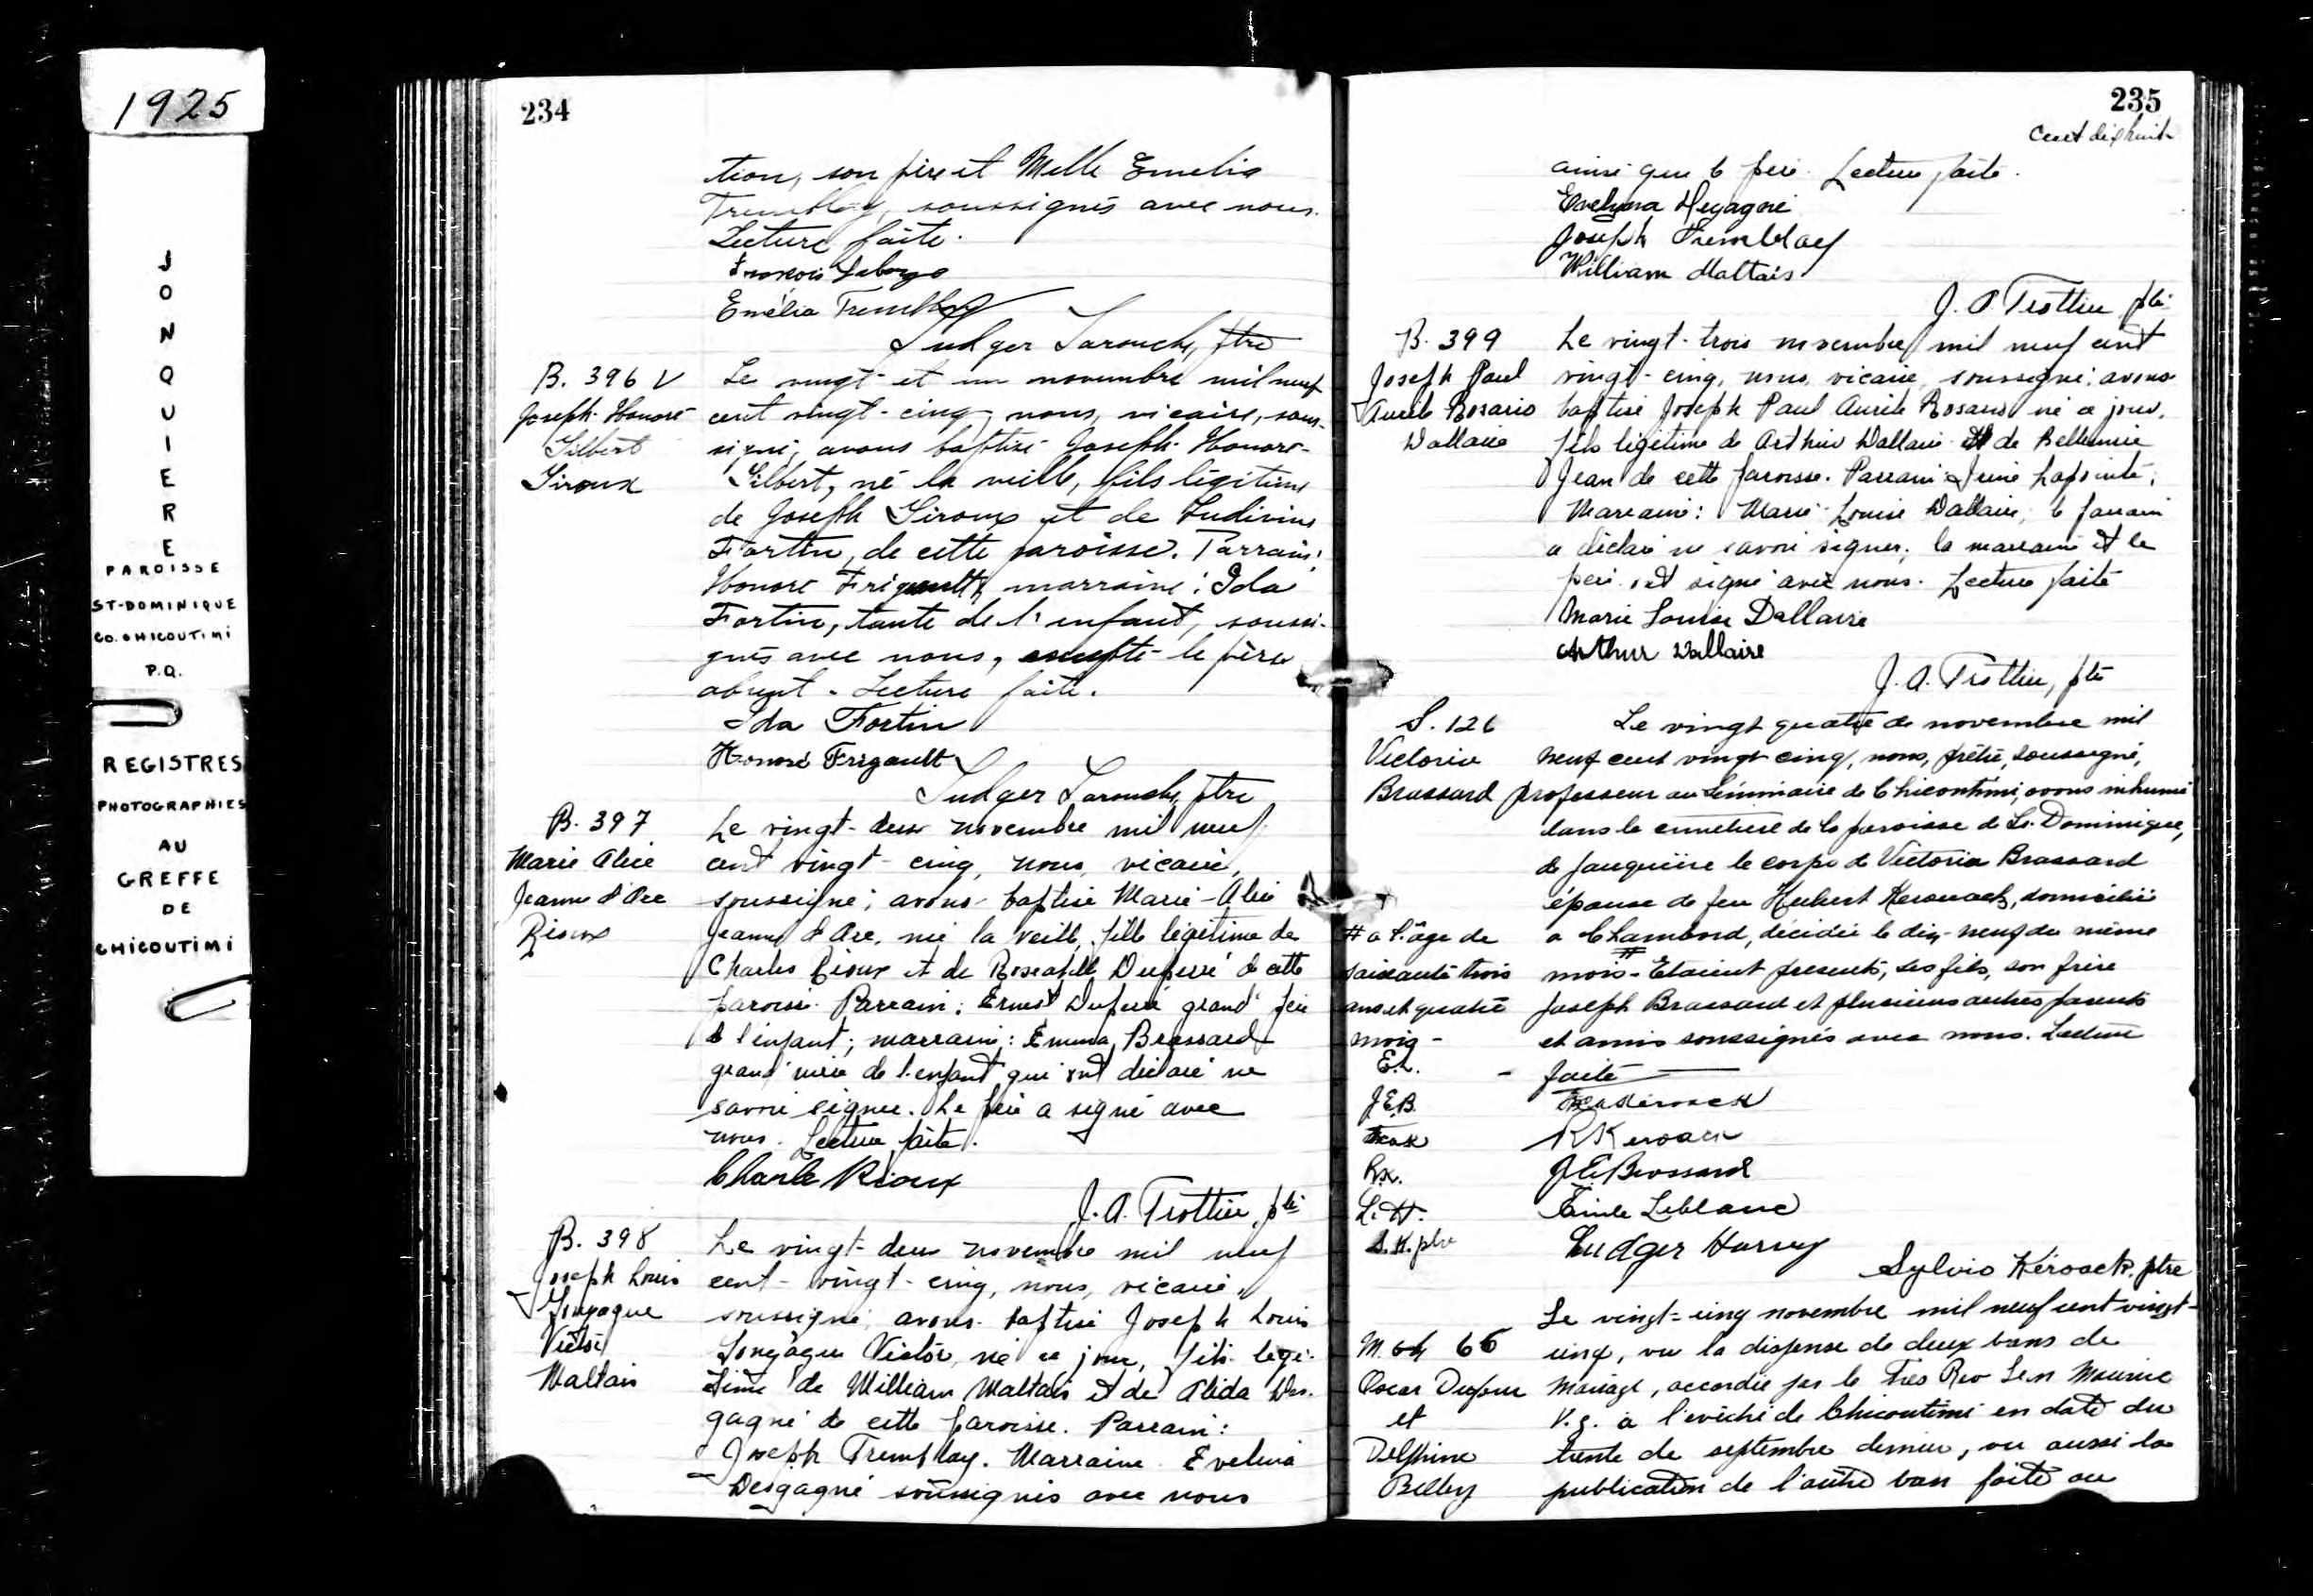 1925
JONQUIERE
PAROISSE
ST-DOMINIQUE
CO. CHICOUTIMI
P.Q.
REGISTRES
PHOTOGRAPHIES
AU
GREFFE
DE
CHICOUTIMI
234
tion, son père et Melle Emelia
Tremblay, soussignés avec nous.
Lecture faite.
Emélia Tremblay
Ludger Larouche, ptre
B. 396 V
Joseph-Honoré
Gilbert
Giroux
Le vingt-et un novembre mil neuf
cent vingt-cinq, nous, vicaire, sous-
signé, avons baptisé Joseph-Honoré-
Gilbert, né la veille, fils légitime
de Joseph Giroux et de Ludivine
Fortin, de cette paroisse. Parrain:
Honoré Frigault, marraine: Ida
Fortin, tante de l'enfant, soussi-
gnés avec nous, excepté le père
absent. Lecture faite.
Ida Fortin
Honoré Frigault
Ludger Larouche, ptre
B. 397
Marie Alice
Jeanne d'Arc
Rioux
Le vingt-deux novembre mil neuf
cent vingt-cinq, nous, vicaire,
soussigné, avons baptisé Marie-Alice
Jeanne d'Arc, née la veille, fille légitime de
Charles Rioux et de Rose de cette
paroisse. Parrain: Ernest Duperré grand père
de l'enfant; marraine: Emma Brassard
grand'mère de l'enfant qui ont déclaré ne
savoir signer. Le père a signé avec
nous. Lecture faite.
Charle Rioux
J. A. Trottier, ptre
B. 398
Joseph Louis
Gonzague
Victor
Maltais
Le vingt-deux novembre mil neuf
cent-vingt-cinq, nous, vicaire,
soussigné, avons baptisé Joseph Louis
Gonzague Victor, né ce jour, fils légi-
time de William Maltais et de Alida Des-
gagné de cette paroisse. Parrain:
Joseph Tremblay. Marraine Evelina
Desgagné soussignés avec nous
235
Cent dix huit
ainsi que le père. Lecture faite.
Joseph Tremblay
William Maltais
J. A. Trottier ptre
B. 399
Joseph Paul
Aurèle Rosario
Dallaire
Le vingt-trois novembre mil neuf cent
vingt-cinq, nous, vicaire, soussigné, avons
baptisé Joseph Paul Aurèle Rosario né ce jour,
fils légitime de Arthur Dallaire et de
Jean de cette paroisse. Parrain Lapointe;
Marraine: Marie-Louise Dallaire; le parrain
a déclaré ne savoir signer; la marraine et le
père ont signé avec nous. Lecture faite
Marie Louise Dallaire
Arthur Dallaire
J. A. Trottier, ptre
S. 126
Victoria
Brassard
Le vingt quatre de novembre mil
neuf cent vingt cinq, nous, prêtre, soussigné,
professeur au Séminaire de Chicoutimi, avons inhumé
dans le cimetière de la paroisse de St. Dominique,
de Jonquière le corps de Victoria Brassard
épouse de feu Hubert Kerouack, domiciliée
a Chambord, décédée le dix-neuf du même
mois - Etaient présents, ses fils, son frère
Joseph Brassard et plusieurs autres parents
et amis soussignés avec nous. Lecture
faite
# a l'âge de
soixante trois
ans et quatre
mois -
E.L.
J.E.B.
R.K.
L.H.
S.K. ptre
R Keroack
J E Brassard
Emile Leblanc
Ludger Harvey
Sylvio Kéroack. ptre
M. 66
Oscar Dufour
et
Delphine
Belley
Le vingt-cinq novembre mil neuf cent vingt-
cinq, vu la dispense de deux bans de
mariage, accordée par le Très Rev
V.g. à l'evêché de Chicoutimi en date du
trente de septembre dernier, vu aussi la
publication de l'autre ban faite au